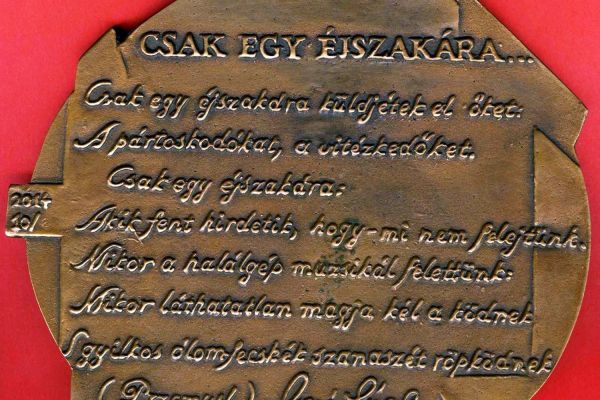 CSAK EGY ÉJSZAKÁRA...
Csak egy éjszakára küldjétek el őket:
A pártoskodókat, a vitézkedőket.
Csak egy éjszakára:
Akik fent hirdetik, hogy - mi nem felejtünk.
Mikor a halálgép muzsikál felettünk:
Mikor láthatatlan magja kél a ködnek
S gyilkos ólom-fecskék szanaszét röpködnek
2014
10/